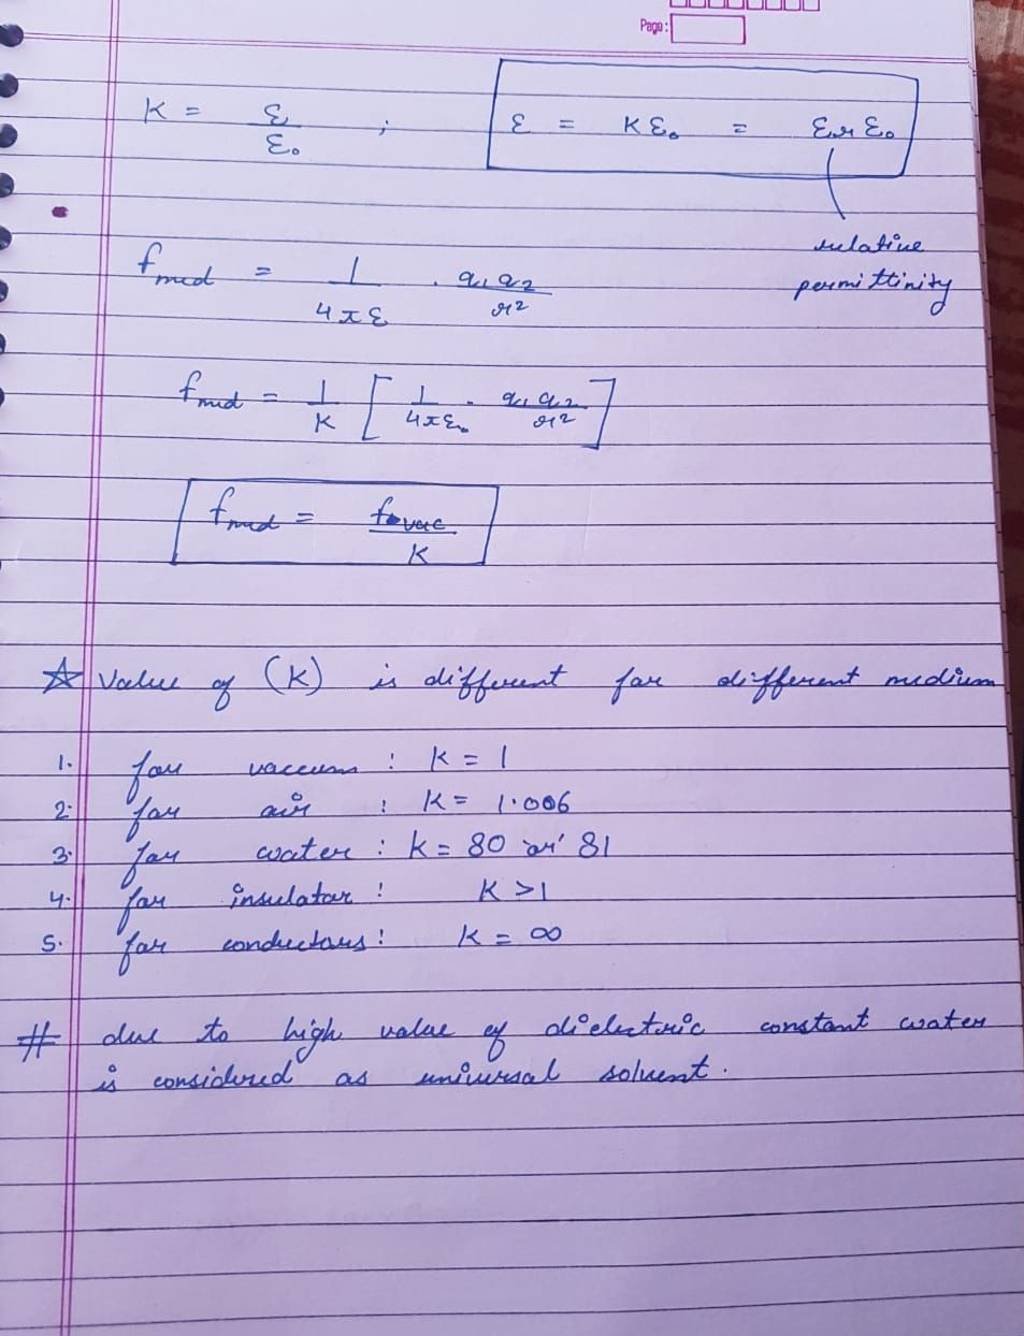 Page:
K = ε/ε₀ ; ε = Kε₀ = εr ε₀
relative
permittinity
fmed = 1/4πε . q₁q₂/r²
fmed = 1/K [ 1/4πε₀ . q₁q₂/r² ]
fmed = fvac/K
☆ Value of (K) is different for different medium
1. for vaccum : K = 1
2. for air : K = 1.006
3. for water : k = 80 'or' 81
4. for insulator : K > 1
5. for conductors : K = ∞
# due to high value of dielectric constant water
is considered as universal solvent.